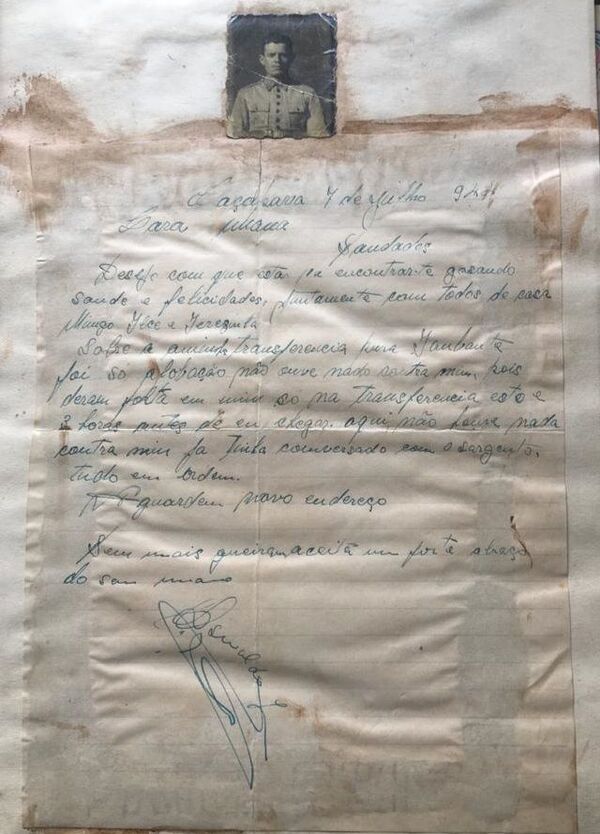 Caçapava 7 de Julho 941
Cara mana
Saudades
Desejo com que esta va encontrar-te gosando
saude e felicidades, juntamente com todos de casa
Mingo Ilce e Terezinha
Sobre a minha transferencia para Taubaté
foi so afobação não ouve nada contra mim, pois
deram falta em mim so na transferencia esto e
2 horas antes de eu chegar. aqui não houve nada
contra mim ja tinha conversado com o sargento.
tudo em ordem.
Aguardem novo endereço
Sem mais queiram aceitá um forte abraço
do seu mano
Oswaldo